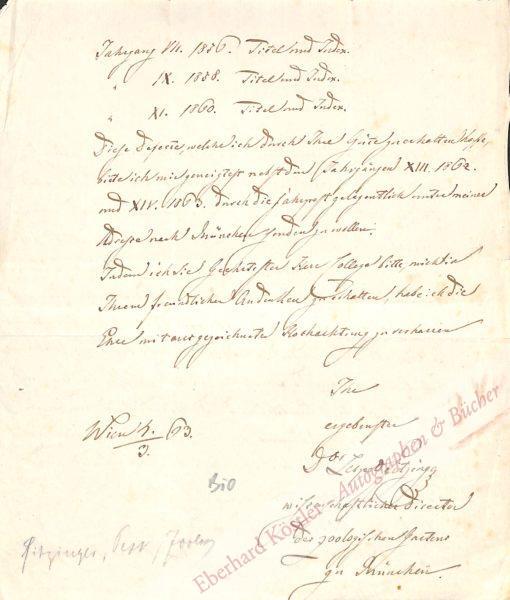 Jahrgang VII. 1856. Titel und Index.
" IX. 1858. Titel und Index.
" XI. 1860. Titel und Index.
Diese Defecte, welche ich durch Ihre Güte zu erhalten hoffe,
bitte ich mir geneigtest nebst den Jahrgängen XIII. 1862.
und XIV. 1863. durch die Fahrpost gelegentlich unter meiner
Adresse nach München senden zu wollen.
Indem ich Sie Geehrtester Herr College bitte, mich in
Ihrem freundlichen Andenken zu behalten, habe ich die
Ehre mit ausgezeichneter Hochachtung zu verharren
Ihr
ergebenster
Dr Leop. Fitzinger
wissenschaftlicher Director
des zoologischen Gartens
zu München.
Wien 4./3. 63.
BiO
Fitzinger, Zoolog
Eberhard Köstler - Autographen & Bücher